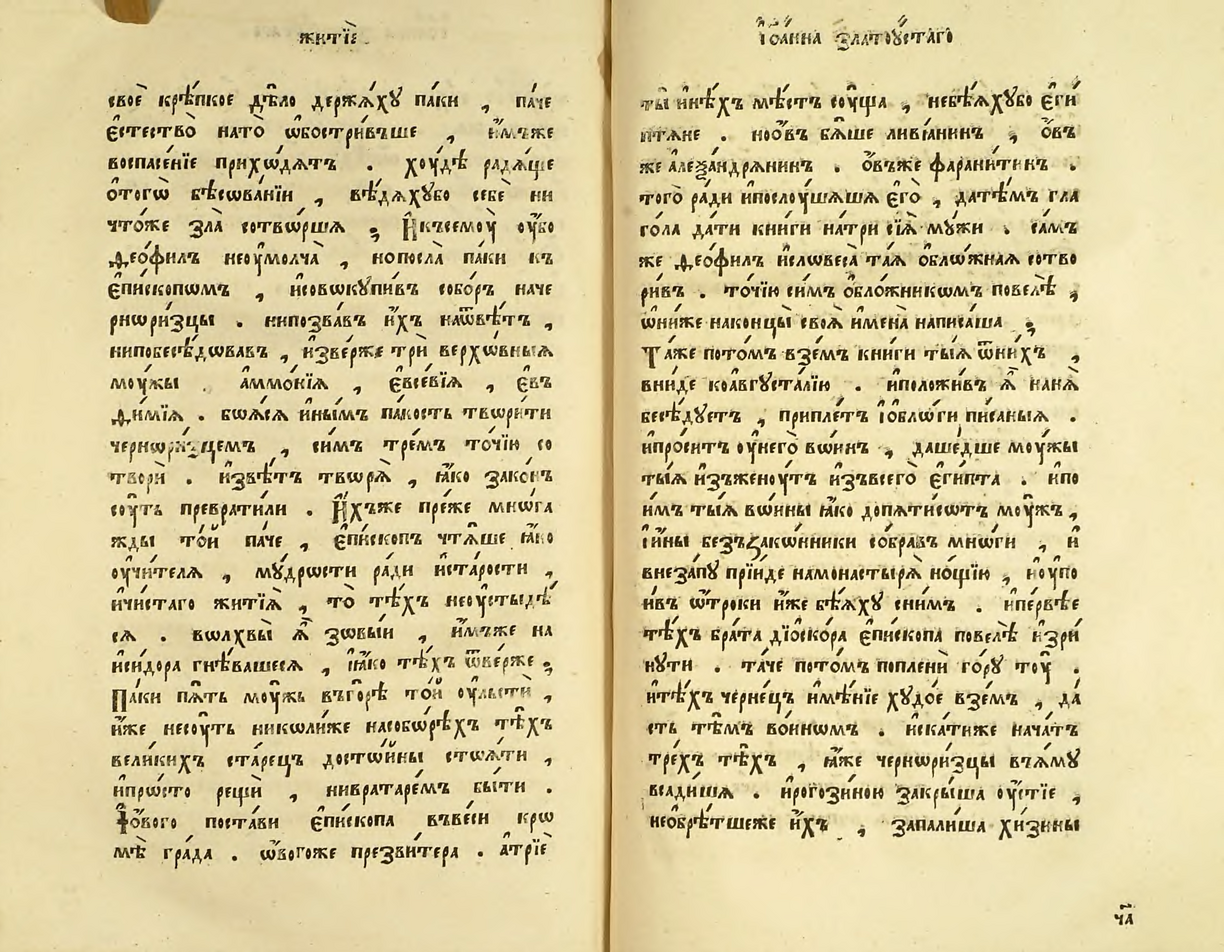 житїѐ
своѐ крѣ́пкое дѣ́ло держа́хꙋ па́ки , па́че
є҆стество̀ нато̀ ѡ҆бостри́вьше , и҆́мъже
воспасе́нїе прихо́дѧтъ . хꙋдѣ̀ радѧ́ще
ѻ҆тогѡ̀ бѣсова́нїи , вѣ́дѧхꙋбо себѐ ни
что́же зла̀ сотво́ршѧ ; И҆късемꙋ̀ оу҆́бо
Ѳео́филъ неоу҆молча̀ , нопосла̀ па́ки къ
є҆пи́скопѡмъ , и҆совокꙋпи́въ собо́ръ наче
рнори́зцы . нипозва́въ и҆́хъ наѿвѣ́тъ ,
нипобесѣ́довавъ , и҆зве́рже трѝ верхо́вныѧ
моу́жы . а҆ммо́нїѧ , є҆все́вїѧ , є҆въ
ѳи́мїѧ . боѧ́сѧ и҆ны́мъ па́кость твори́ти
чернори́зцемъ , си́мъ тре́мъ то́чїю со
творѝ . и҆звѣ́тъ творѧ̀ , ꙗ҆́кѡ зако́нъ
соу́ть преврати́ли . И҆́хъже пре́же мно́га
жды то́й па́че , є҆пи́скопъ чтѧ́ше ꙗ҆́кѡ
оу҆чи́телѧ , мꙋ́дрости ра́ди и҆ста́рости ,
и҆чи́стаго житїѧ̀ , то̀ тѣ́хъ неоу҆стыдѣ̀
сѧ . волхвы̀ ѧ҆̀ зовы́й , и҆́мъже на
и҆си́дора гнѣ́вашесѧ , ꙗ҆́кѡ тѣ́хъ ѿве́рже ;
Па́ки пѧ́ть моу́жь въго́рѣ то́й оу҆льстѝ ,
и҆́же несоу́ть николи́же насобо́рѣхъ тѣ́хъ
вели́кихъ ста́рецъ досто́йны стоѧ́ти ,
и҆про́сто рещѝ , нивратаре́мъ бы́ти .
І҆о҆́вого поста́ви є҆пи́скопа въве́си кро
мѣ̀ гра́да . ѡ҆́вогоже презви́тера . а҆́трїе
і҆ѡа́нна златоꙋ́стаго
ты̀ и҆нѣ́хъ мѣ́стъ соу́ща , небѣ́ѧхꙋбо є҆гѝ
птѧ́не . ноѻ҆́въ бѧ́ше ливїа́нинъ , ѻ҆́въ
же а҆леѯа́ндрѧнинъ . ѻ҆́въже фарани́тинъ .
того̀ ра́ди и҆послоу́шашѧ є҆го̀ , датѣ́мъ гла
го́ла да́ти кни́ги натрѝ сїѧ̀ мꙋ́жи . са́мъ
же Ѳео́филъ и҆словеса̀ та́ѧ ѻ҆бло́жнаѧ сотво
ри́въ . то́чїю си́мъ ѻ҆бло́жникомъ повелѣ̀ ;
ѡ҆ни́же наконцы̀ своѧ̀ и҆мена̀ написа́ша ;
Та́же пото́мъ взе́мъ кни́ги ты́ѧ ѿни́хъ ,
вни́де коа҆вгꙋста́лїю . и҆положи́въ ѧ҆̀ нанѧ̀
бесѣ́дꙋетъ , припле́тъ І҆ѻ҆бло́ги пи́саныѧ .
и҆про́ситъ оу҆него̀ во́инъ , даше́дше моу́жы
ты́ѧ и҆зъженоу́тъ и҆зъвсего̀ є҆ги́пта . и҆по
и҆́мъ ты́ѧ во́ины ꙗ҆́кѡ допѧтисо́тъ моу́жъ ,
і҆и҆́ны беззако́нники собра́въ мно́ги , и҆
внеза́пꙋ прїи́де намонастырѧ̀ но́щїю , и҆оу҆по
и҆́въ ѻ҆́троки и҆́же бѣ́ѧхꙋ сни́мъ . и҆пе́рвѣе
тѣ́хъ бра́та дїо́скора є҆пи́скопа повелѣ̀ и҆зри́
нꙋти . та́че пото́мъ поплени́ го́рꙋ тоу̀ .
и҆тѣ́хъ черне́цъ и҆мѣ́нїе хꙋдо́е взе́мъ , да́
сть тѣ́мъ во́иномъ . и҆ска́тиже нача́тъ
тре́хъ тѣ́хъ , ꙗ҆́же чернори́зцы въѧ́мꙋ
всади́шѧ . и҆рого́зиною закры́ша оу҆́стїе ,
необрѣ́тшеже и҆́хъ , запали́ша хи́зины
ча